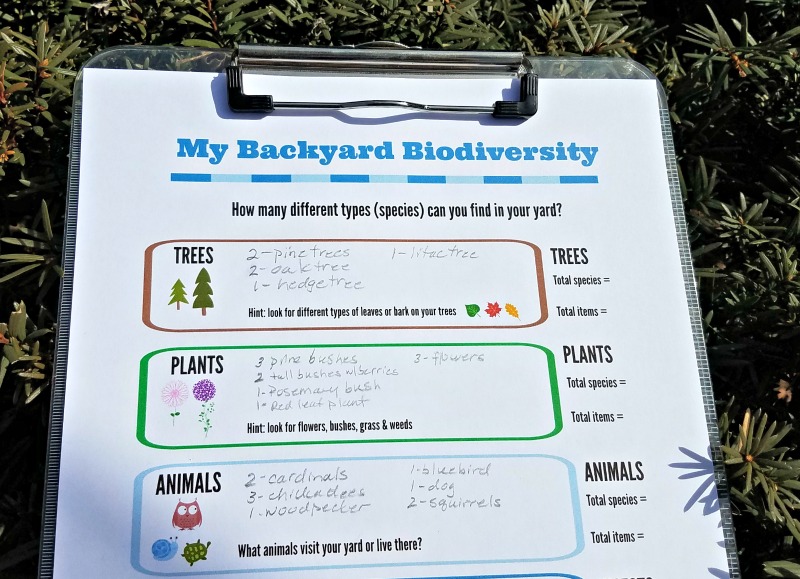 My Backyard Biodiversity
How many different types (species) can you find in your yard?
TREES
2-pine trees 1-lilac tree
2-oak tree
1-hedge tree
Hint: look for different types of leaves or bark on your trees
TREES
Total species =
Total items =
PLANTS
3 pine bushes 3-flowers
2 tall bushes w/berries
1-Rosemary bush
1-Red leaf plant
Hint: look for flowers, bushes, grass & weeds
PLANTS
Total species =
Total items =
ANIMALS
2-cardinals 1-bluebird
3-chickadees 1-dog
1-woodpecker 2-squirrels
What animals visit your yard or live there?
ANIMALS
Total species =
Total items =